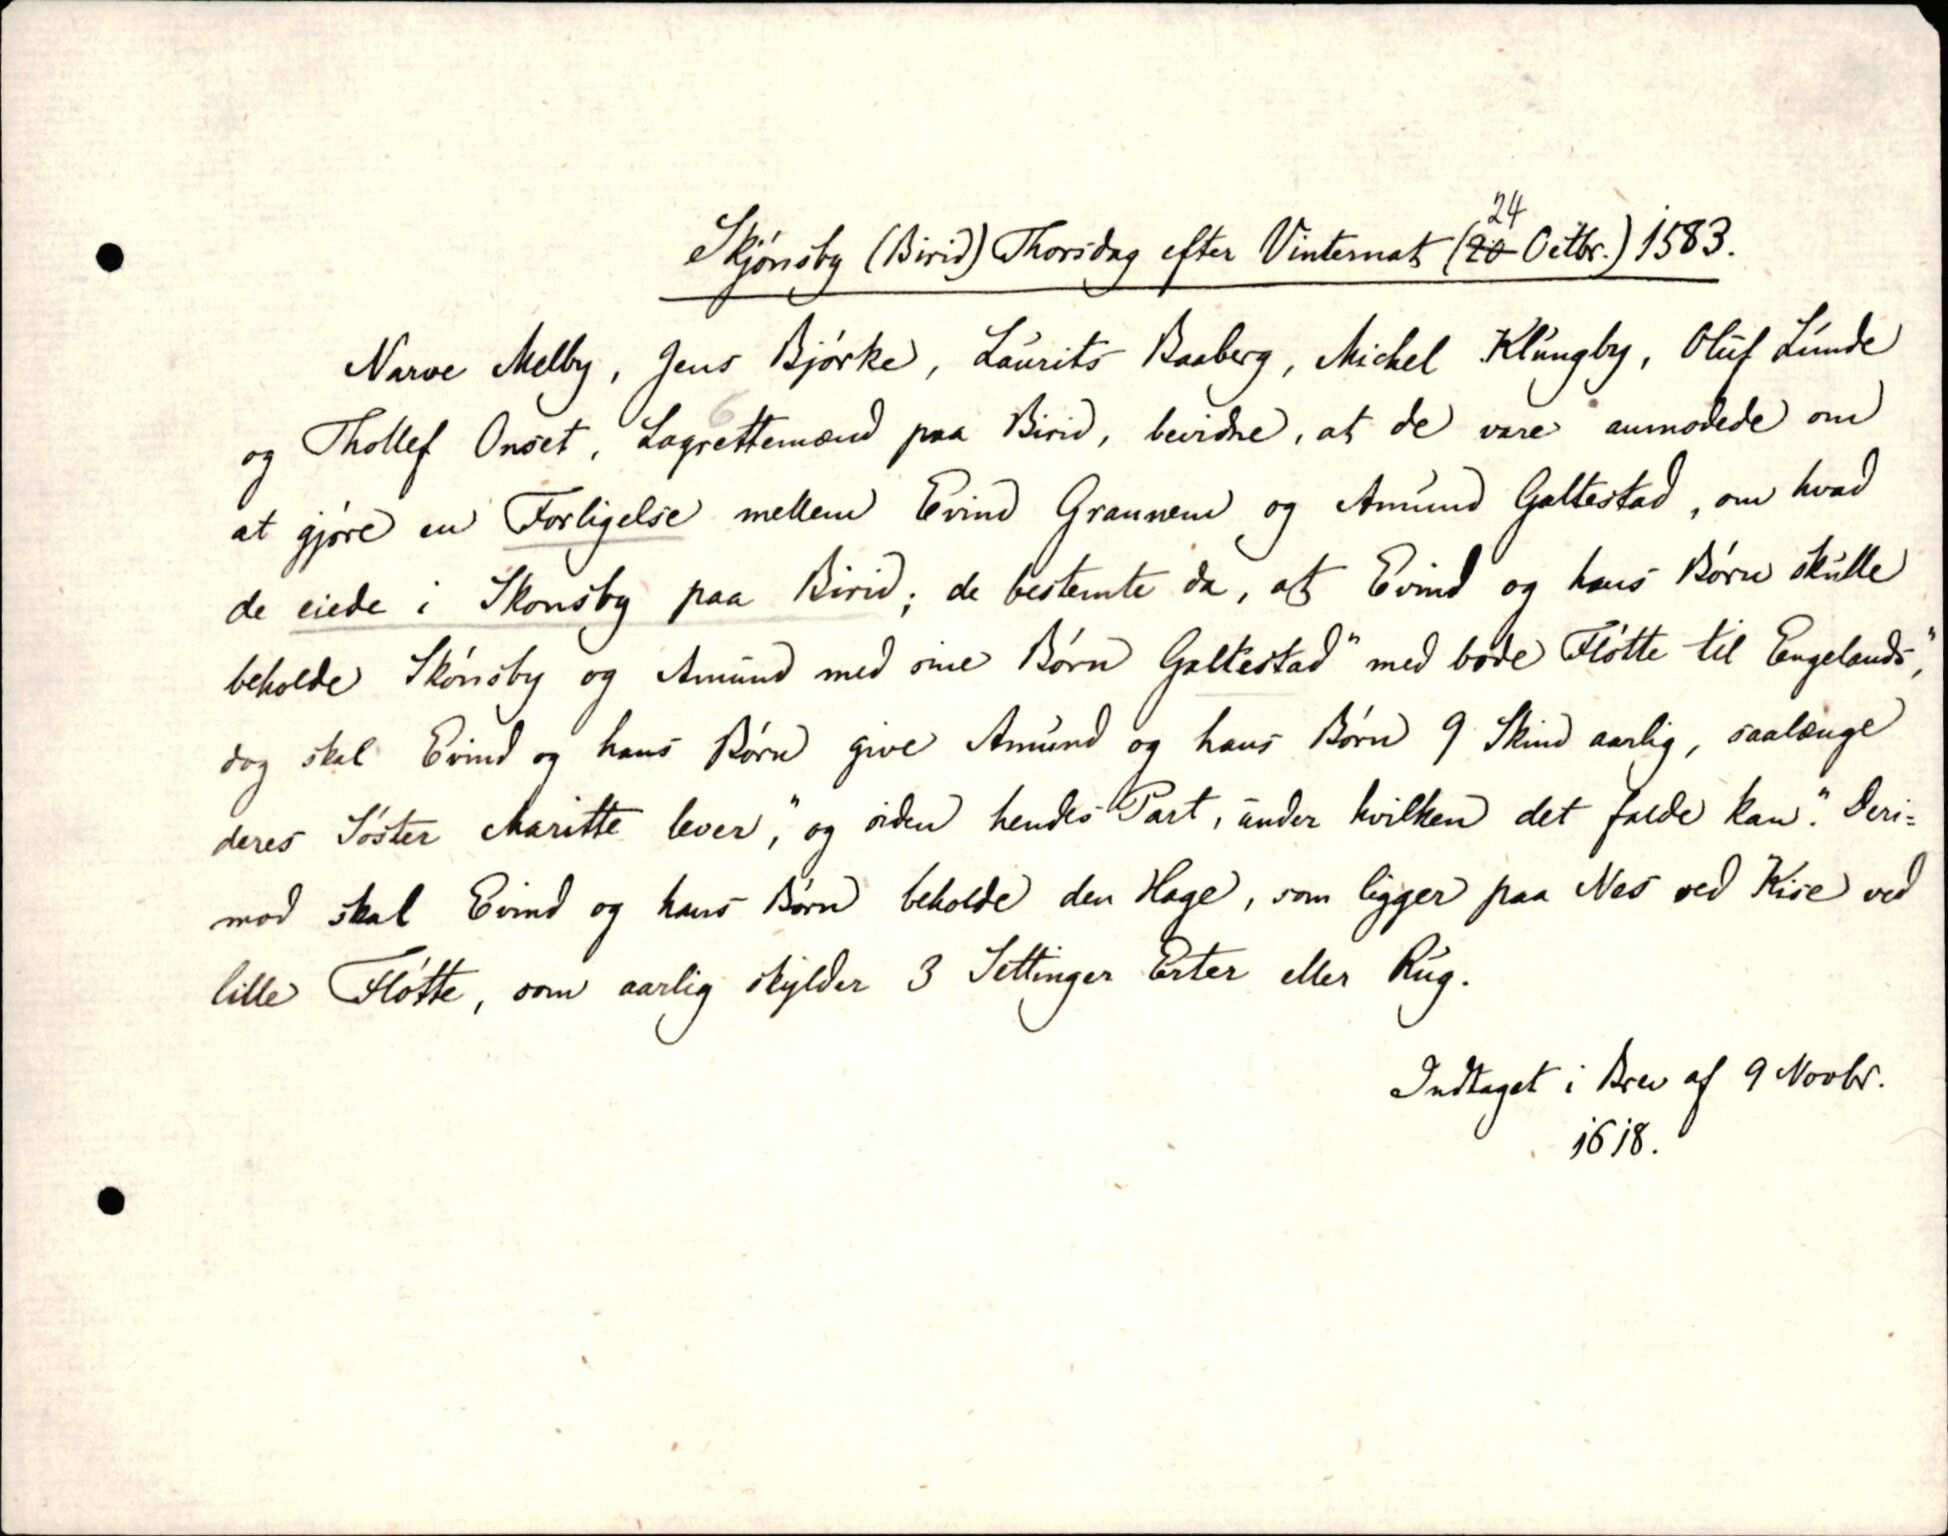 Skjónsby (Birid) Thorsdag efter Vinternat (20 24 Octbr.) 1583.
Narve Melby, Jens Bjórke, Laurits Baaberg, Michel Klungby, Oluf Lunde
og Thollef Onset, Lagrettemænd paa Birid, bevidne, at de vare anmodede om
at gjóre en Forligelse mellem Evind Grannem og Amund Galtestad, om hvad
de eiede i Skonsby paa Birid; de bestemte da, at Evind og hans Bórn skulle
beholde Skónsby og Amund med sine Bórn Galtestad "med bode Flótte til Engelands",
dog skal Evind og hans Bórn give Amund og hans Bórn 9 Skind aarlig, saalænge
deres Sóster Maritte lever, "og siden hendes Part, under hvilken det falde kan". Deri=
mod skal Evind og hans Bórn beholde den Hage, som ligger paa Nes ved Kise ved
lille Flótte, som aarlig skylder 3 Settinger Erter eller Rug.
Indtaget i Brev af 9 Novbr.
1618.